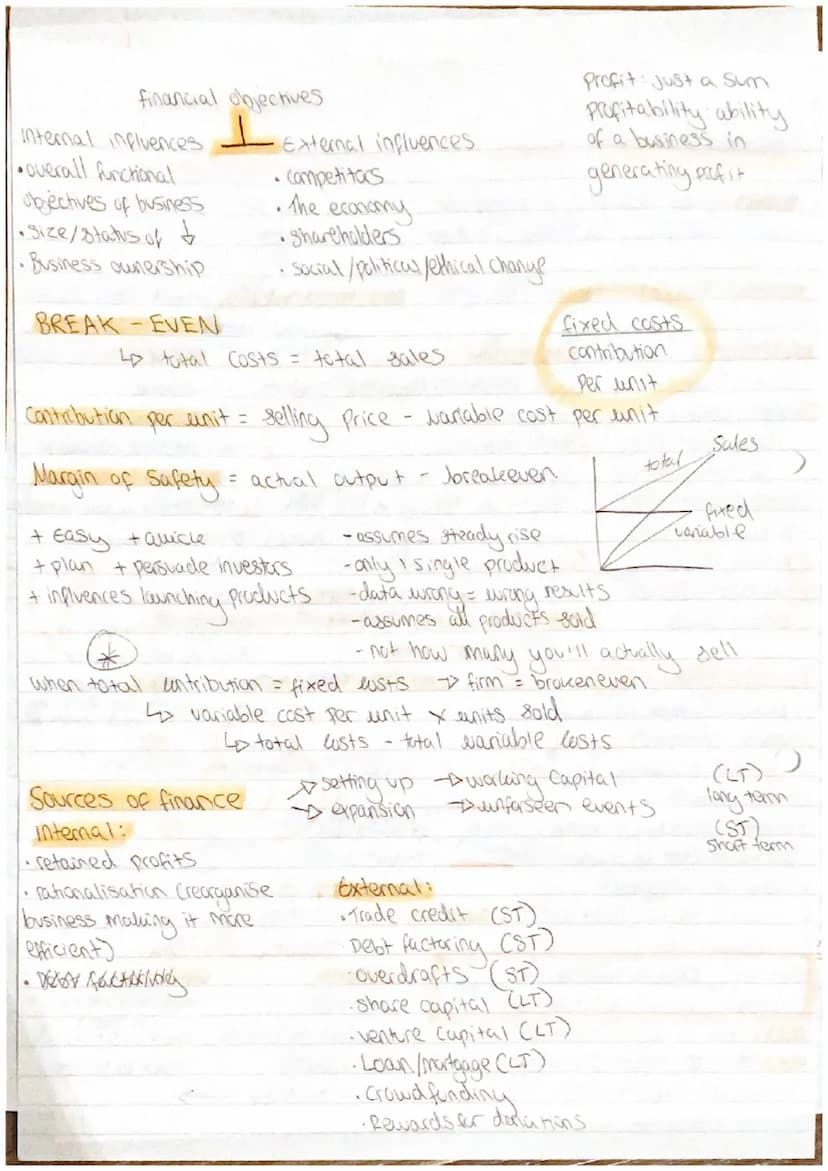 financial objectives
profit: just a sum
profitability: ability
of a business in
generating profit
Internal influences
• overall functional
objectives of business
• Size/status of ↓
• Business ownership
External influences
• competitors
• The economy
• shareholders
• social/political/ethical change
BREAK-EVEN
↳ total costs = total sales
fixed costs
contribution
per unit
Contribution per unit = selling price - variable cost per unit
Margin of Safety = actual output - breakeven
Sales
total
fixed
variable
+ Easy + quick
+ plan + persuade investors
+ influences launching products
- assumes steady rise
- only 1 single product
- data wrong = wrong results
- assumes all products sold
- not how many you'll actually sell
*
when total contribution = fixed costs → firm = brokeneven
↳ variable cost per unit x units sold
↳ total costs - total variable costs
Sources of finance
→ setting up → working capital
→ expansion → unforseen events
(LT)
long term
(ST)
short term
Internal:
• retained profits
• rationalisation (reorganise
business making it more
efficient)
• Debt factoring
External:
• Trade credit (ST)
• Debt factoring (ST)
• overdrafts (ST)
• share capital (LT)
• venture capital (LT)
• Loan/mortgage (LT)
• Crowdfunding
• Rewards for donations